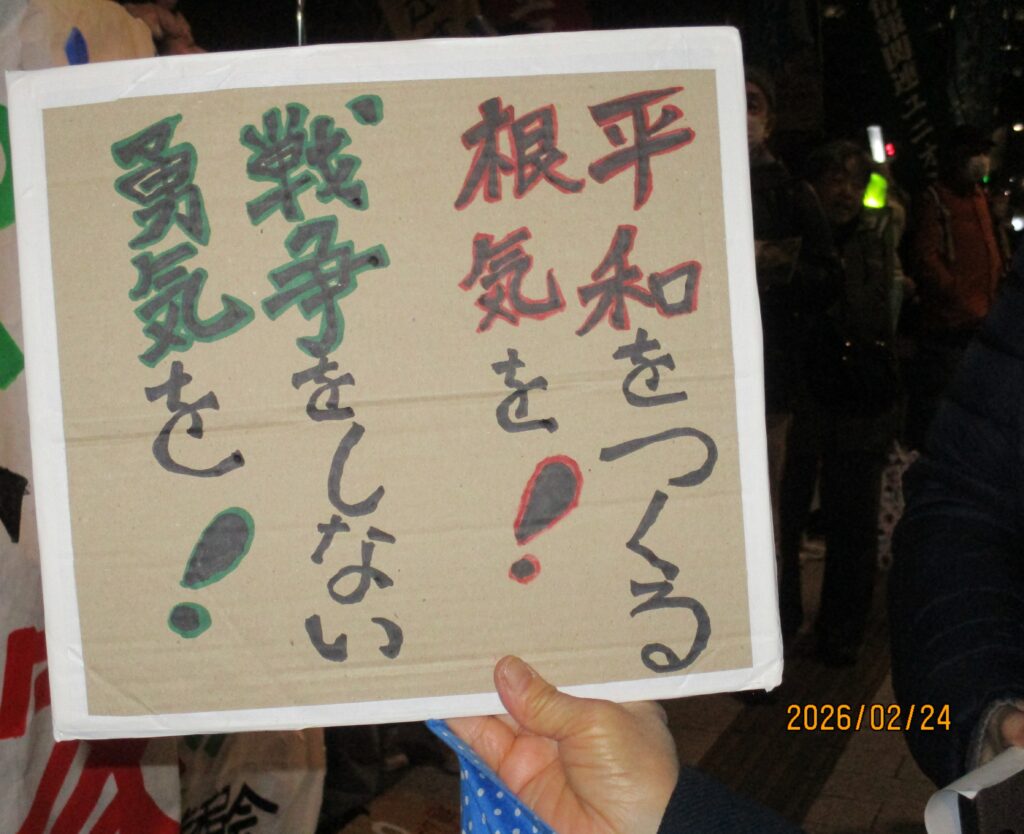 平和をつくる
根気を!
戦争をしない
勇気を!
2026/02/24